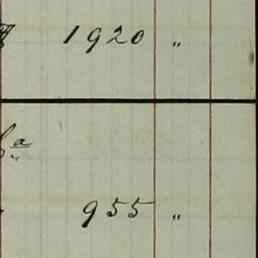 1920 "
a
955 "